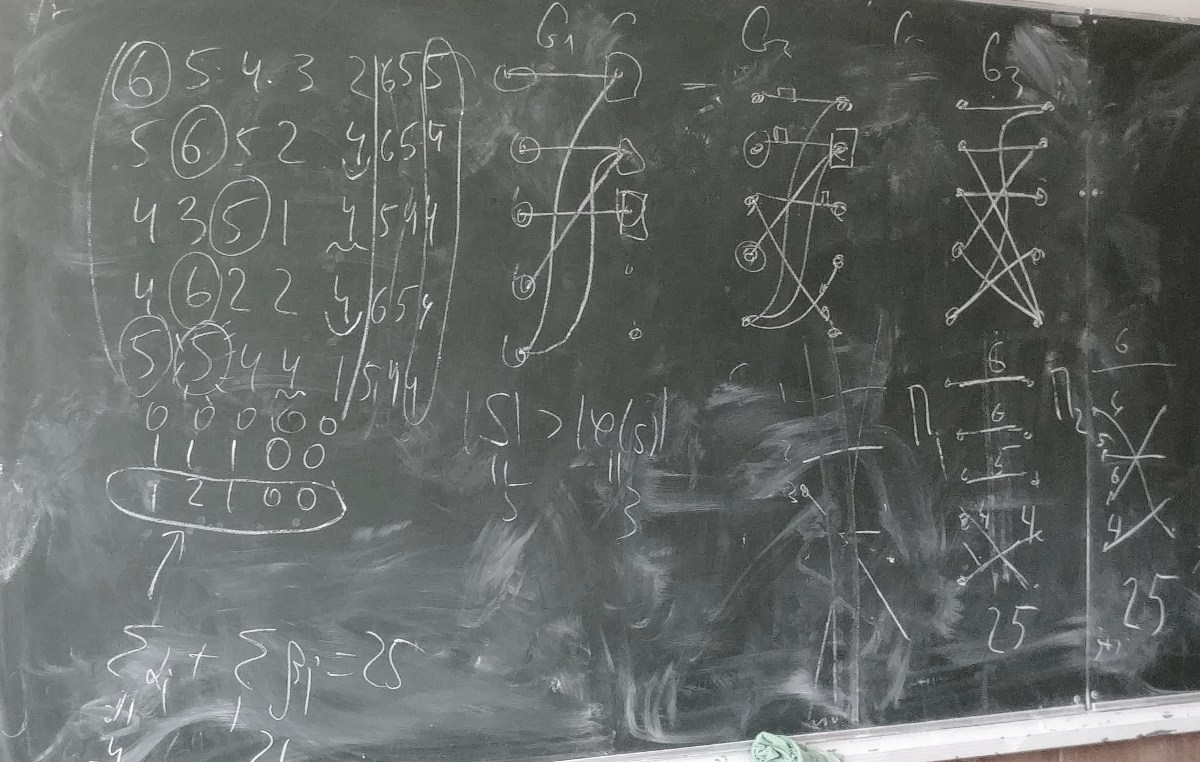 G1 G2 G3
6 5 4 3 2 6 5 5
5 6 5 2 4 6 5 4
4 3 5 1 4 5 4 4
4 6 2 2 4 6 5 4
5 5 4 4 1 5 4 4
0 0 0 0 0
1 1 1 0 0
1 2 1 0 0
|S| > |φ(S)|
|| ||
3 3
1
2
3
Π1
6
6
5
4 4
25
Π2
6
6
5
6
4
25
Σαi + Σβj = 25
|| ||
4 21